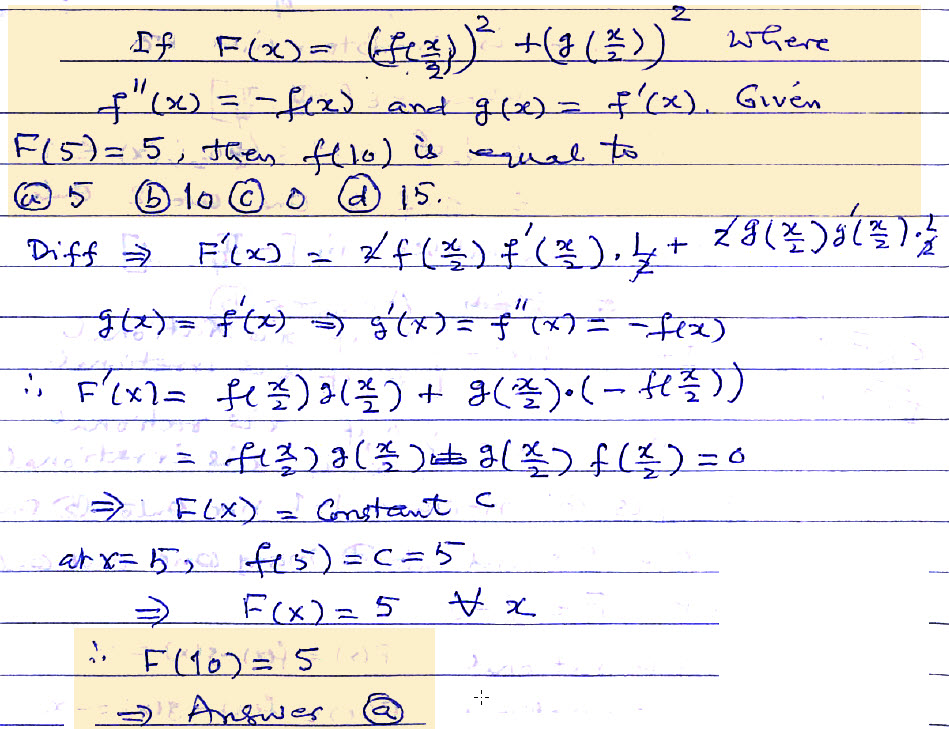 If F(x) = (f(x/2))² + (g(x/2))² where
f''(x) = -f(x) and g(x) = f'(x). Given
F(5) = 5, then f(10) is equal to
ⓐ 5 ⓑ 10 ⓒ 0 ⓓ 15.
Diff ⇒ F'(x) = 2 f(x/2) f'(x/2) · 1/2 + 2 g(x/2) g'(x/2) · 1/2
g(x) = f'(x) ⇒ g'(x) = f''(x) = -f(x)
∴ F'(x) = f(x/2) g(x/2) + g(x/2) · (- f(x/2))
= f(x/2) g(x/2) - g(x/2) f(x/2) = 0
⇒ F(x) = Constant C
at x = 5, f(5) = C = 5
⇒ F(x) = 5 ∀ x
∴ F(10) = 5
⇒ Answer ⓐ